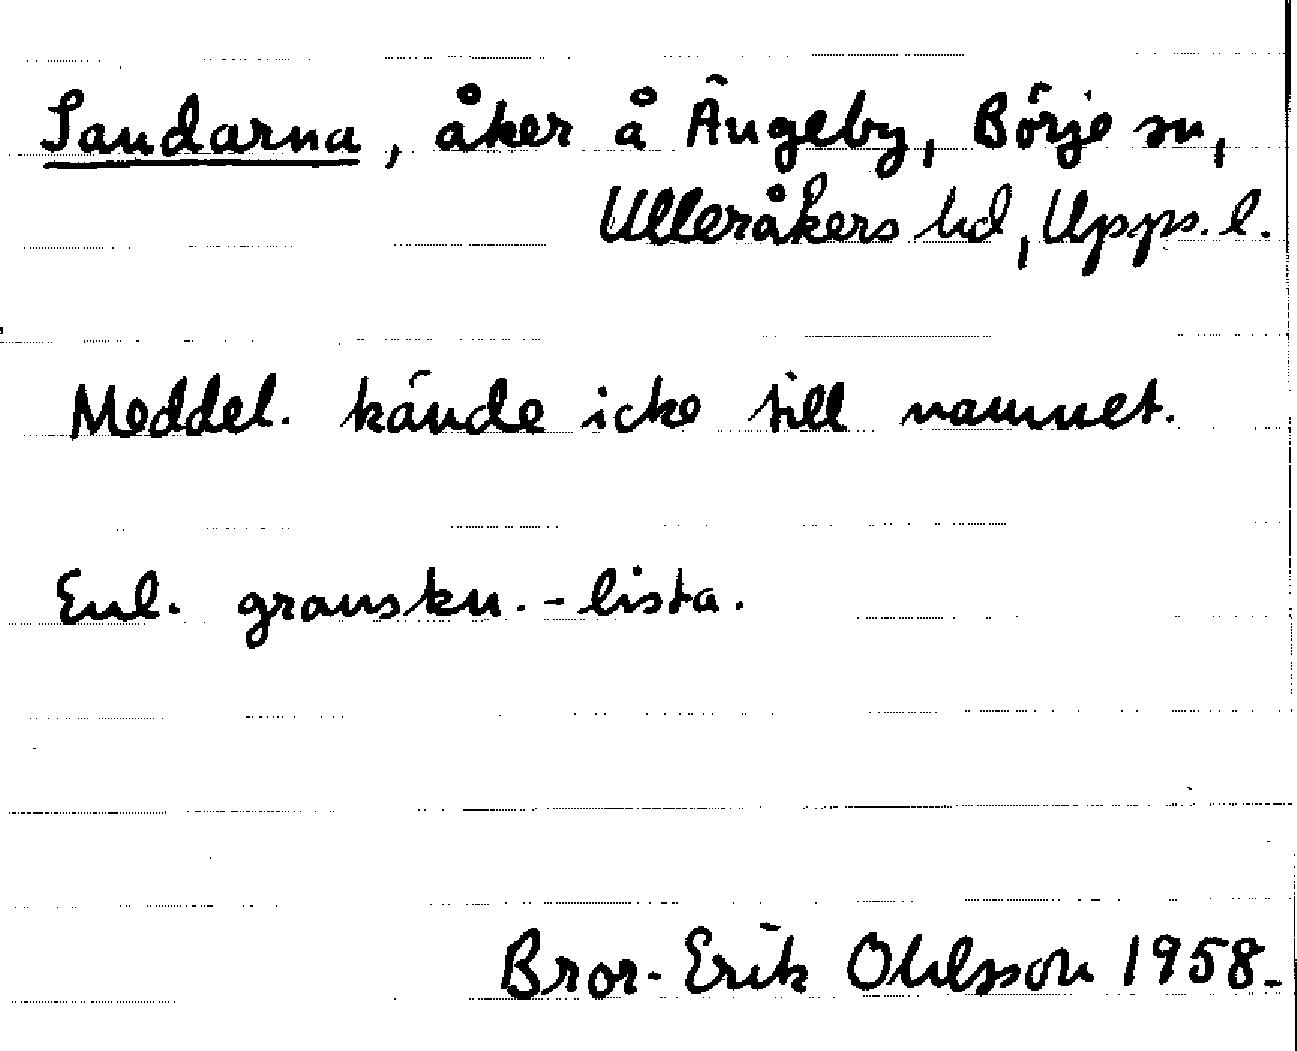 Sandarna, åker å Ängeby, Börje sn,
Ulleråkers hd, Upps. l.
Meddel. kände icke till namnet.
Enl. granskn.-lista.
Bror-Erik Ohlsson 1958.